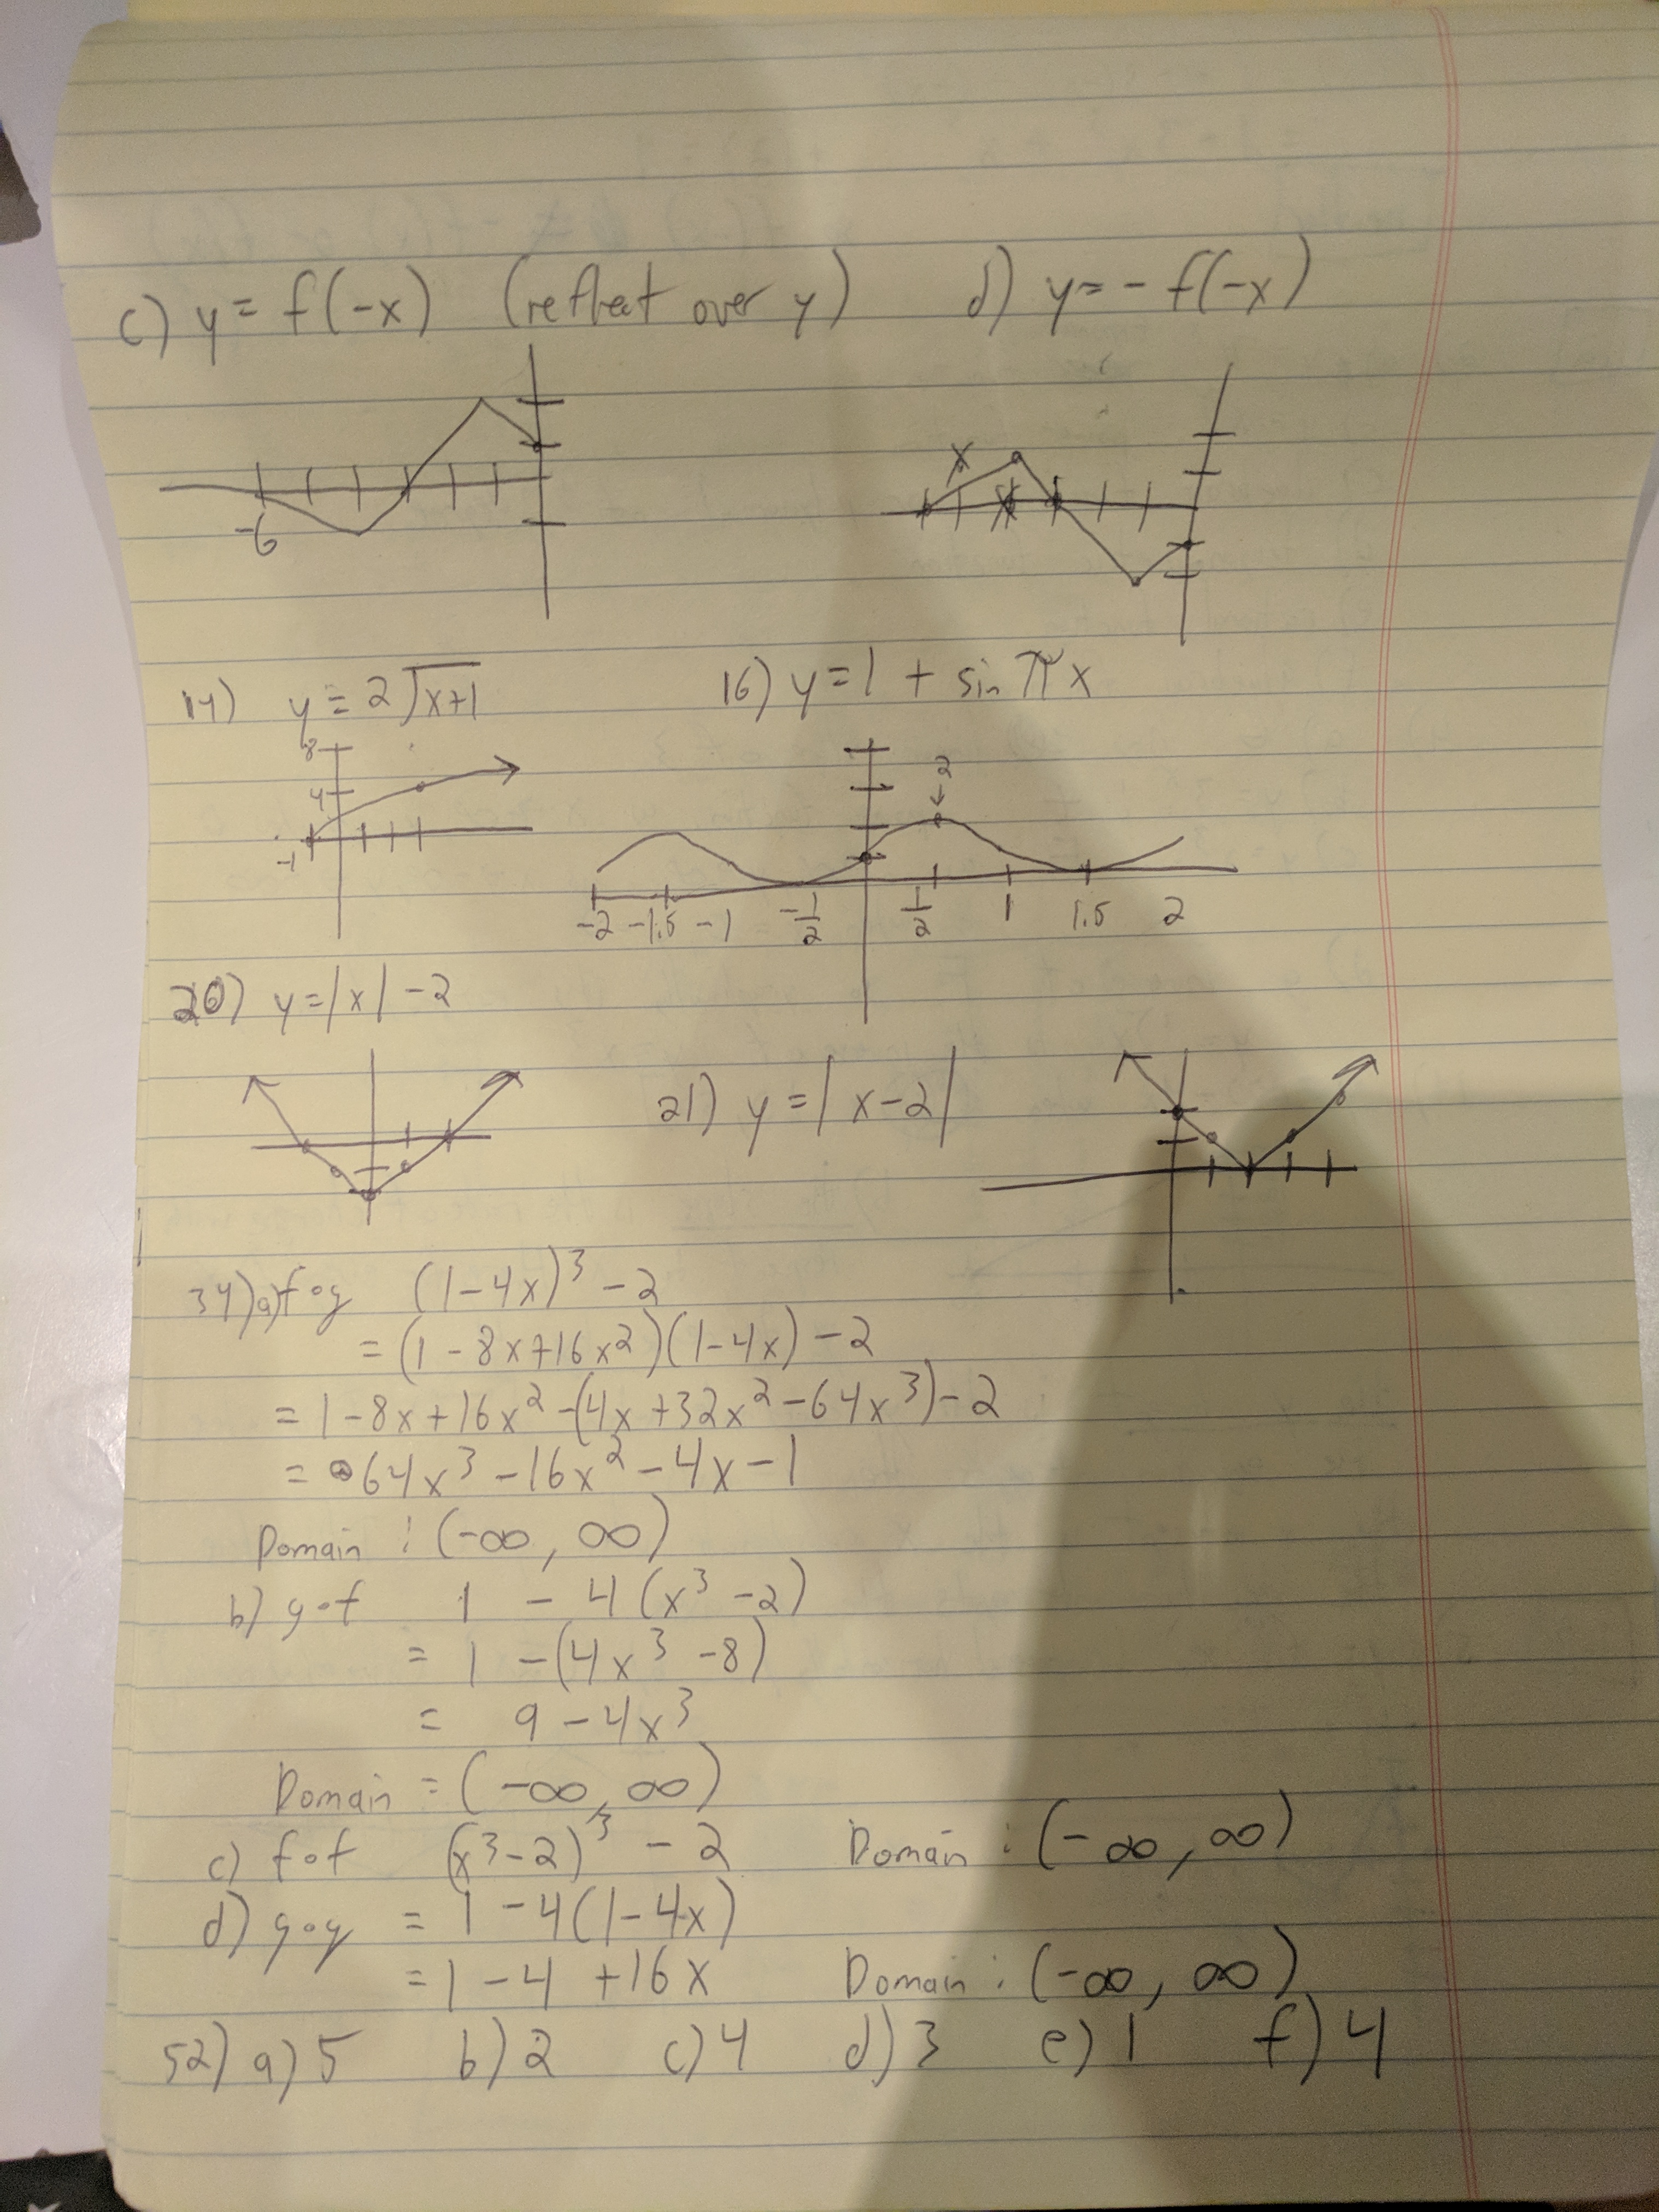 c) y = f(-x) (reflect over y) d) y = - f(-x)
-6
14) y = 2√x+1 16) y = 1 + sin πx
8
4
-1
2
-2 -1.5 -1 -1/2 1/2 1 1.5 2
20) y = |x| - 2
21) y = |x-2|
34) a) f∘g (1-4x)³ - 2
= (1 - 8x + 16x²)(1-4x) - 2
= 1 - 8x + 16x² - (4x + 32x² - 64x³) - 2
= 64x³ - 16x² - 4x - 1
Domain : (-∞, ∞)
b) g∘f 1 - 4(x³ - 2)
= 1 - (4x³ - 8)
= 9 - 4x³
Domain = (-∞, ∞)
c) f∘f (x³-2)³ - 2 Domain : (-∞, ∞)
d) g∘g = 1 - 4(1-4x)
= 1 - 4 + 16x Domain : (-∞, ∞)
52) a) 5 b) 2 c) 4 d) 3 e) 1 f) 4